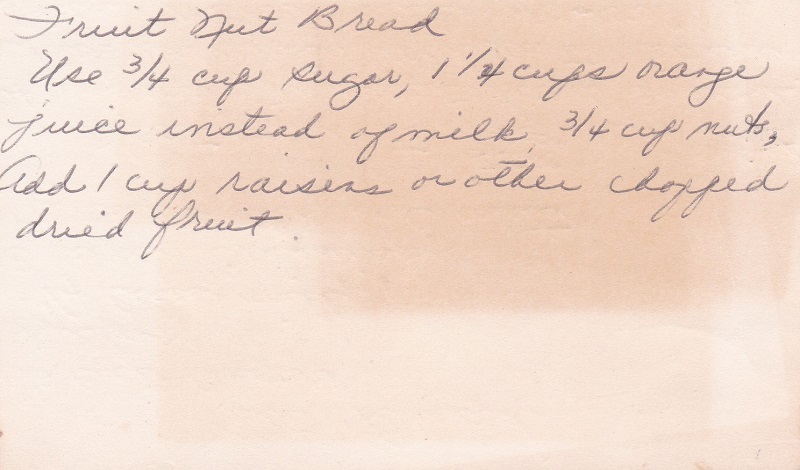 Fruit Nut Bread
Use 3/4 cup sugar, 1 1/4 cups orange
juice instead of milk, 3/4 cup nuts,
Add 1 cup raisins or other chopped
dried fruit.